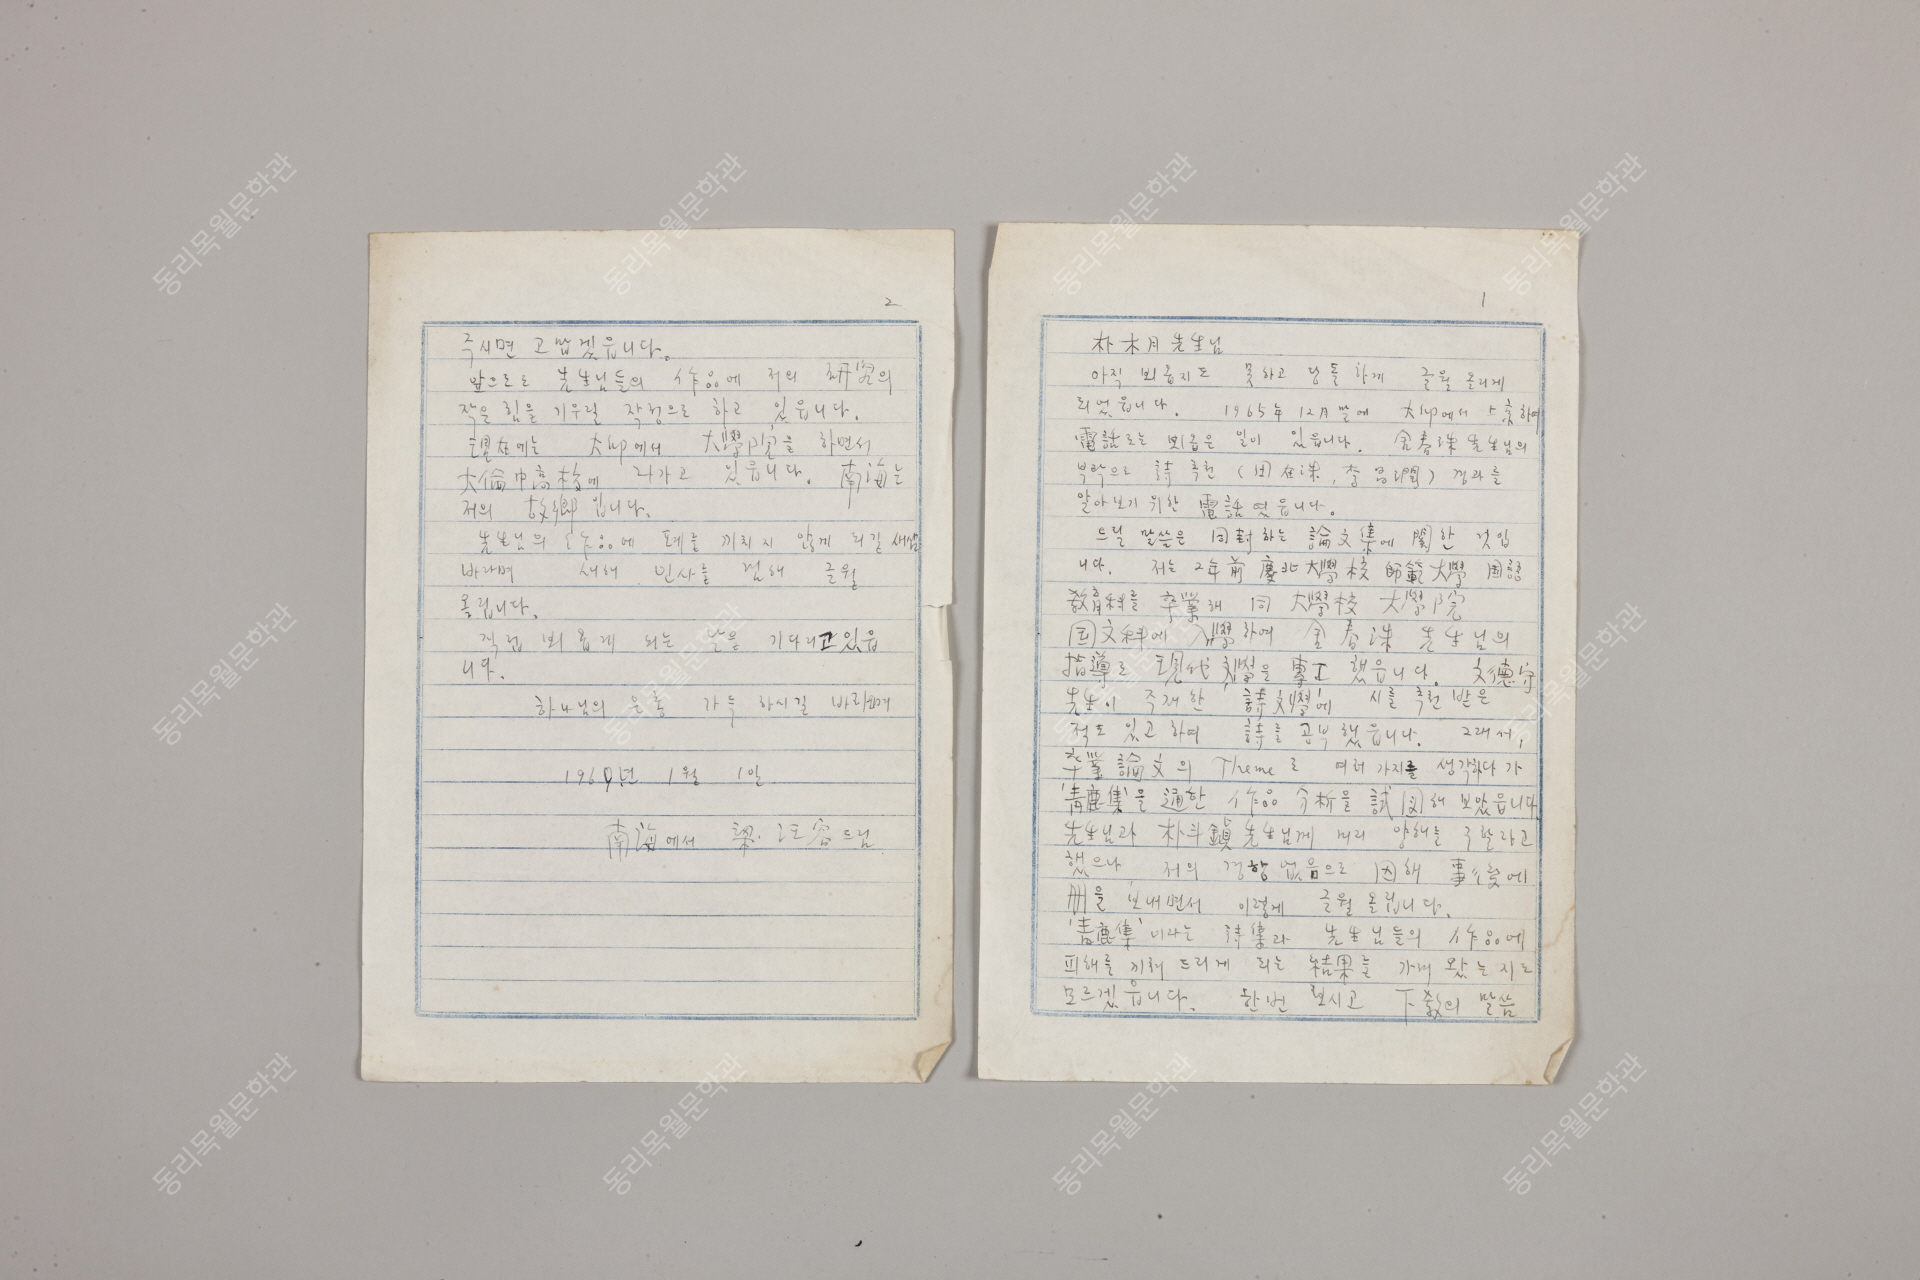 1
朴木月 先生님
아직 뵈옵지도 못하고 당돌하게 글월 올리게
되었읍니다. 1965年 12月 말에 大邱에서 上京하여
電話로는 뵈옵은 일이 있읍니다. 金春洙 先生님의
부탁으로 詩 추천 ( 在洙, 李昌潤) 경과를
알아보기 위한 電話였읍니다.
드릴 말씀은 同封하는 論文集에 關한 것입
니다. 저는 2年前 慶北大學校 師範大學 国語
敎育科를 卒業해 同 大學校 大學院
国文科에 入學하여 金春洙 先生님의
指導로 現代文學을 專工했읍니다. 文德守
先生이 주재한 詩文學에 시를 추천 받은
적도 있고 하여 詩를 공부했읍니다. 그래서,
卒業論文의 Theme로 여러가지를 생각하다가
'靑鹿集'을 通한 作品 分析을 試図해 보았읍니다
先生님과 朴斗鎭 先生님께 미리 양해를 구할라고
했으나 저의 경황 없음으로 因해 事後에
册을 보내면서 이렇게 글월 올립니다.
'靑鹿集'이나는 詩集과 先生님들의 作品에
피해를 끼쳐 드리게 되는 結果를 가져 왔는지도
모르겠읍니다. 한번 보시고 下敎의 말씀
2
주시면 고맙겠읍니다.
앞으로도 先生님들의 作品에 저의 研究의
작은 힘을 기우릴 작정으로 하고 있읍니다.
現在에는 大邱에서 大學院을 하면서
大倫中高校에 나가고 있읍니다. 南海는
저의 故鄕입니다.
先生님의 作品에 폐를 끼치지 않게 되길 새삼
바라며 새해 인사를 겸해 글월
올립니다.
직접 뵈옵게 되는 날을 기다리고 있읍
니다.
하나님의 은총 가득 하시길 바라오며
196 년 1월 1일
南海에서 梁汪容 드림
동리목월문학관
동리목월문학관
동리목월문학관
동리목월문학관
동리목월문학관
동리목월문학관
동리목월문학관
동리목월문학관
동리목월문학관
동리목월문학관
동리목월문학관
동리목월문학관